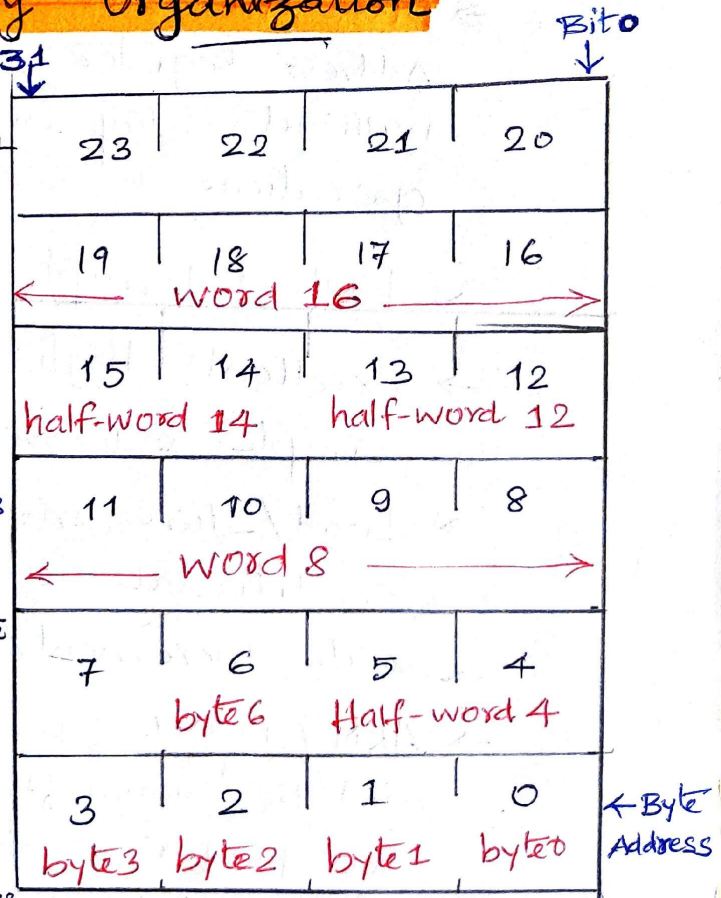 Organization
Bit0
31
23 22 21 20
19 18 17 16
word 16
15 14 13 12
half-word 14 half-word 12
11 10 9 8
word 8
7 6 5 4
byte6 Half-word 4
3 2 1 0 ←Byte
byte3 byte2 byte1 byte0 Address